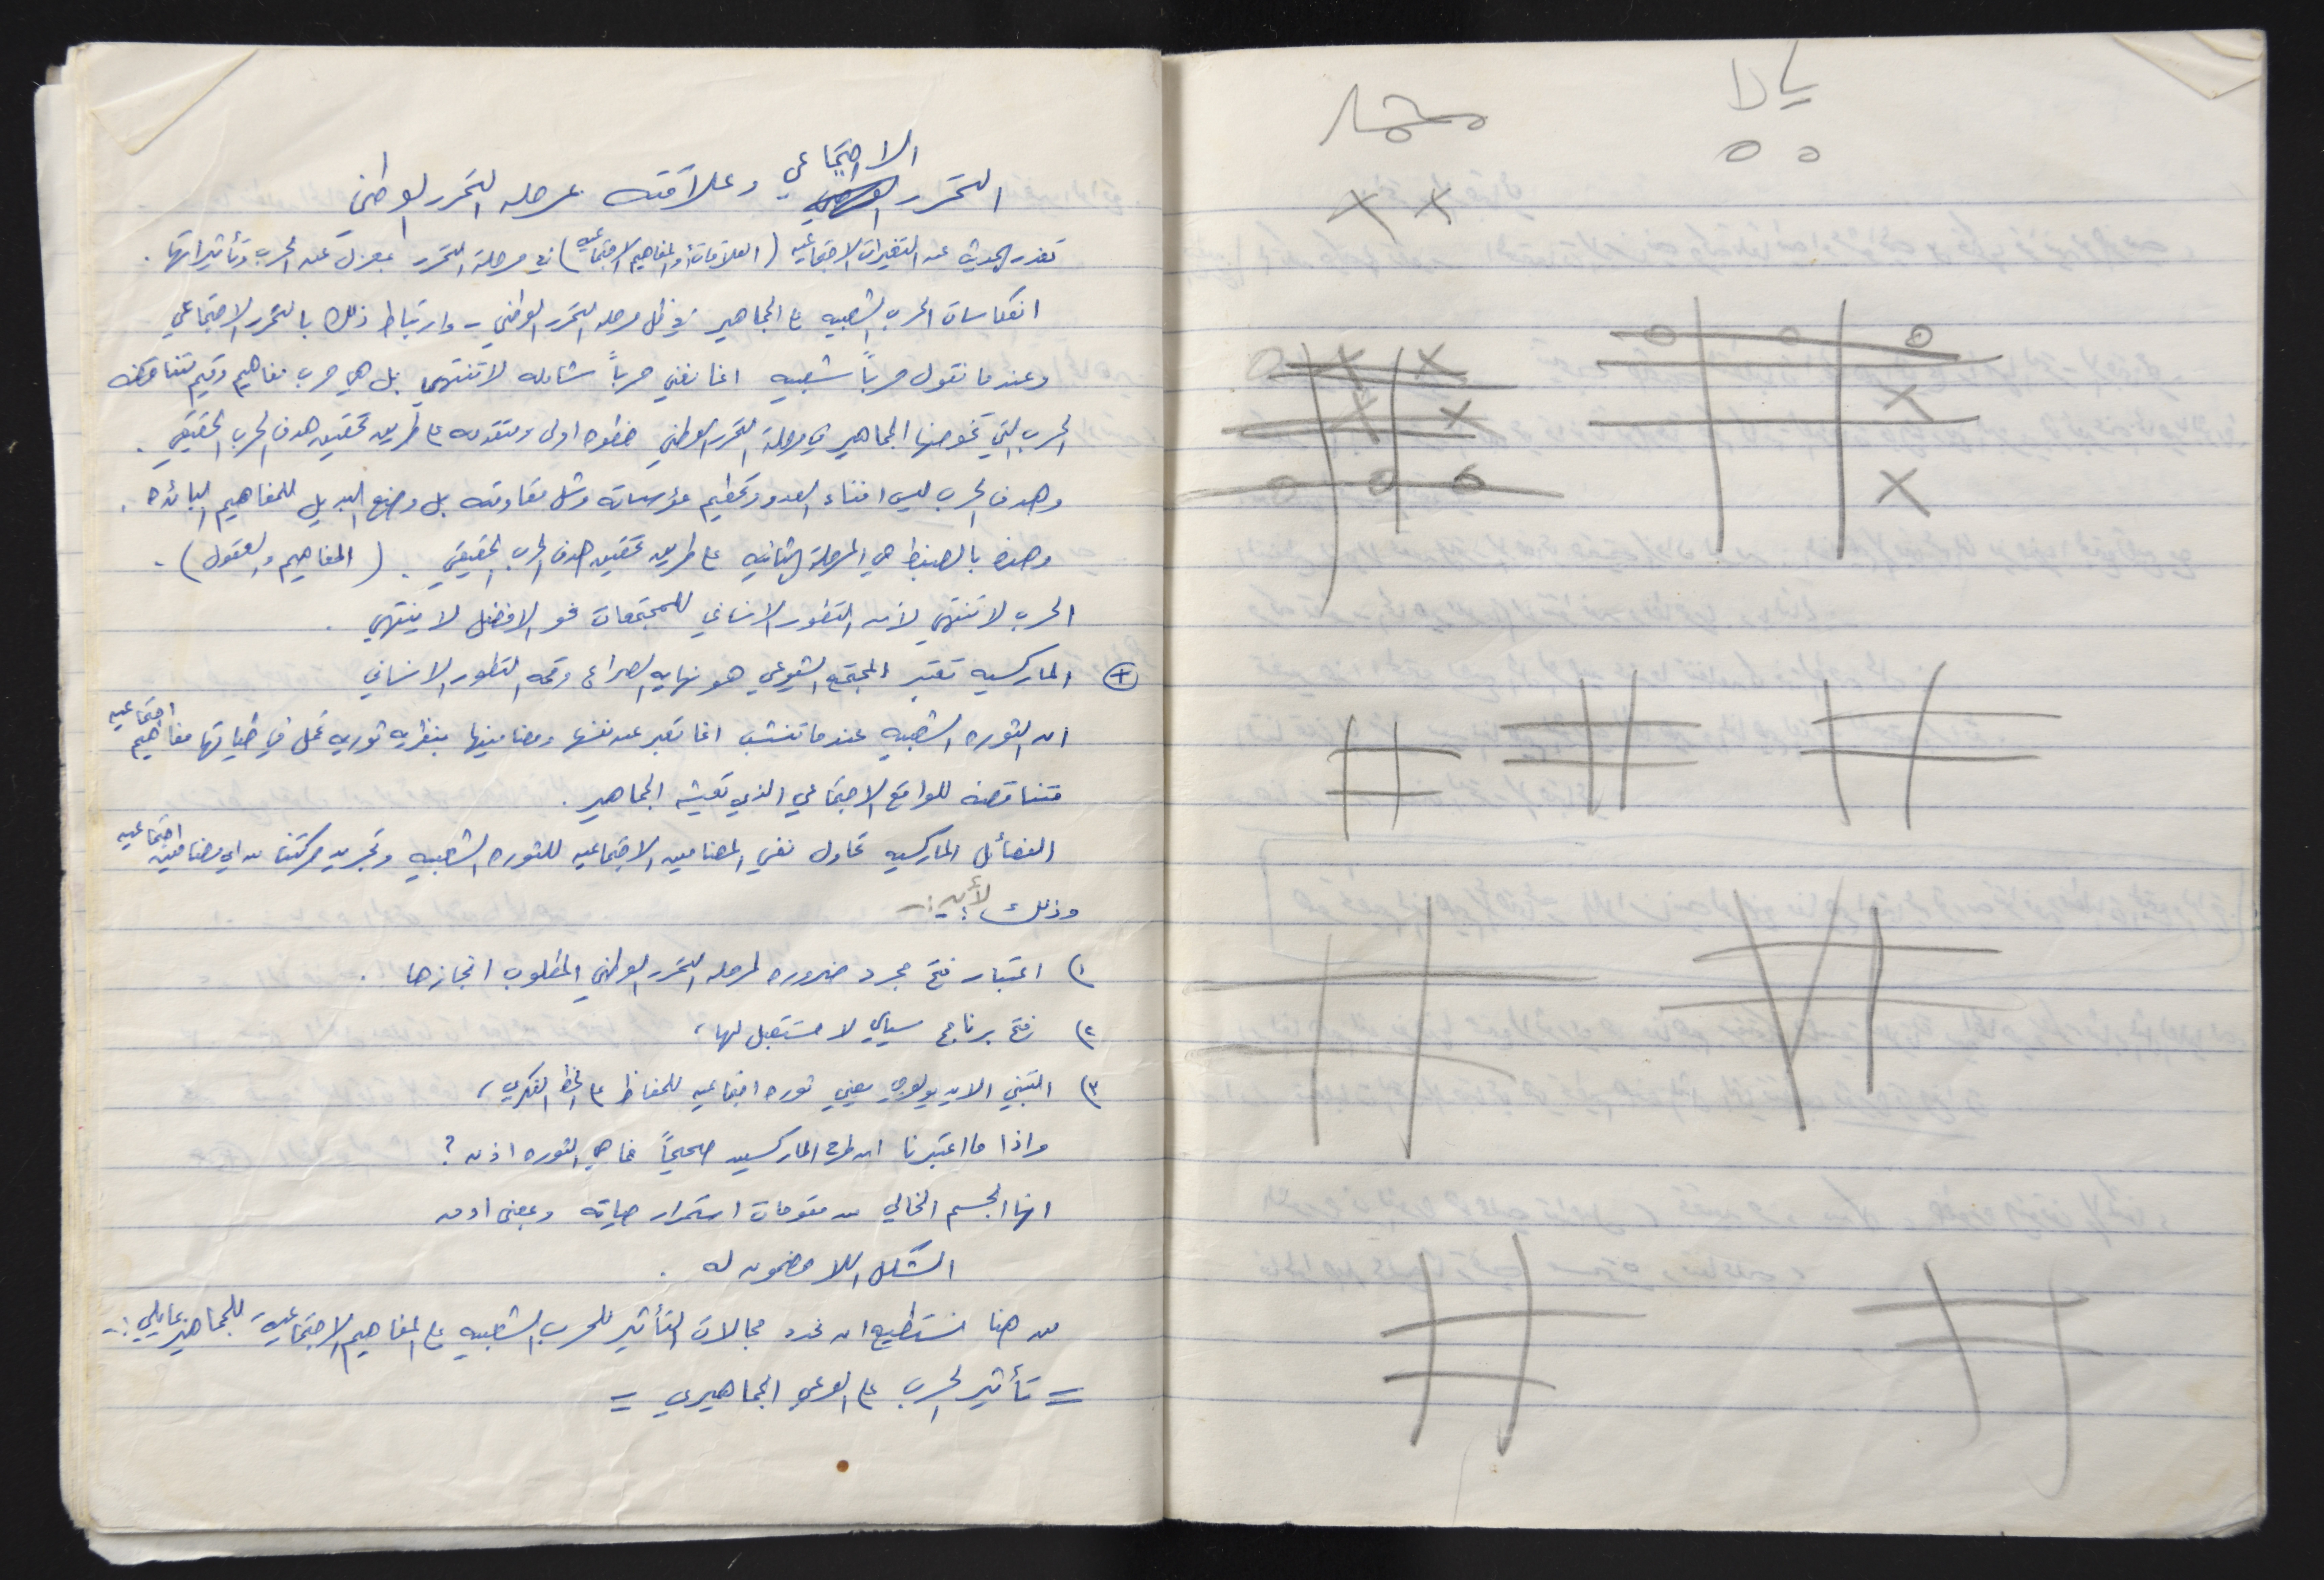 التحرر الاجتماعي وعلاقته بمرحلة التحرر الوطني
تعذر الحديث عن التغيرات الاجتماعيه (العلاقات أو المفاهيم الاجتماعيه) في مرحلة التحرر بمعزل عن الحرب وتأثيراتها .
انعكاسات الحرب الشعبيه على الجماهير في ظل مرحله التحرر الوطني - وارتباط ذلك بالتحرر الاجتماعي
وعندما نقول حرباً شعبيه انما نعني حرباً شامله لا تنتهي بل هي حرب مفاهيم وقيم متناقضه
الحرب التي تخوضها الجماهير في مرحلة التحرر الوطني خطوه اولى ومتقدمه على طريق تحقيق هدف الحرب الحقيقي .
وهدف الحرب ليس افناء العدو وتحطيم مؤسساته وشل مقاومته بل وضع البديل للمفاهيم البائده .
وهذه بالضبط هي المرحلة الثانيه على طريق تحقيق هدف الحرب الحقيقي . (المفاهيم والعقول) .
الحرب لا تنتهي لأن التطور الانساني للمجتمعات نحو الافضل لا ينتهي .
+ الماركسيه تعتبر المجتمع الشيوعي هو نهايه الصراع وقمه التطور الانساني
ان الثوره الشعبيه عندما تنشب انما تعبر عن نفسها ومضامينها بنظريه ثوريه تحمل في طياتها مفاهيم اجتماعيه
متناقضه للواقع الاجتماعي الذي تعيشه الجماهير .
الفصائل الماركسيه تحاول نفي المضامين الاجتماعيه للثوره الشعبيه وتجريد حركتنا من اي مضامين اجتماعيه
وذلك لأن :-
١) اعتبار فتح مجرد ضروره لمرحله التحرر الوطني المطلوب انجازها .
٢) فتح برنامج سياسي لا مستقبل لها ،
٣) التبني الايديولوجي يعني ثوره اجتماعيه للحفاظ على الخط الفكري ،
واذا ما اعتبرنا ان طرح الماركسيين صحيحاً فما هي الثوره اذن ؟
انها الجسم الخالي من مقومات استمرار حياته وبمعنى ادق
الشكل اللا مضمون له .
من هنا نستطيع ان نحدد مجالات التأثير للحرب الشعبيه على المفاهيم الاجتماعية للجماهير بمايلي :-
= تأثير الحرب على الوعي الجماهيري =
محمد
يالا
X X
O O
O X X
X X
O O O
O O O
X
X